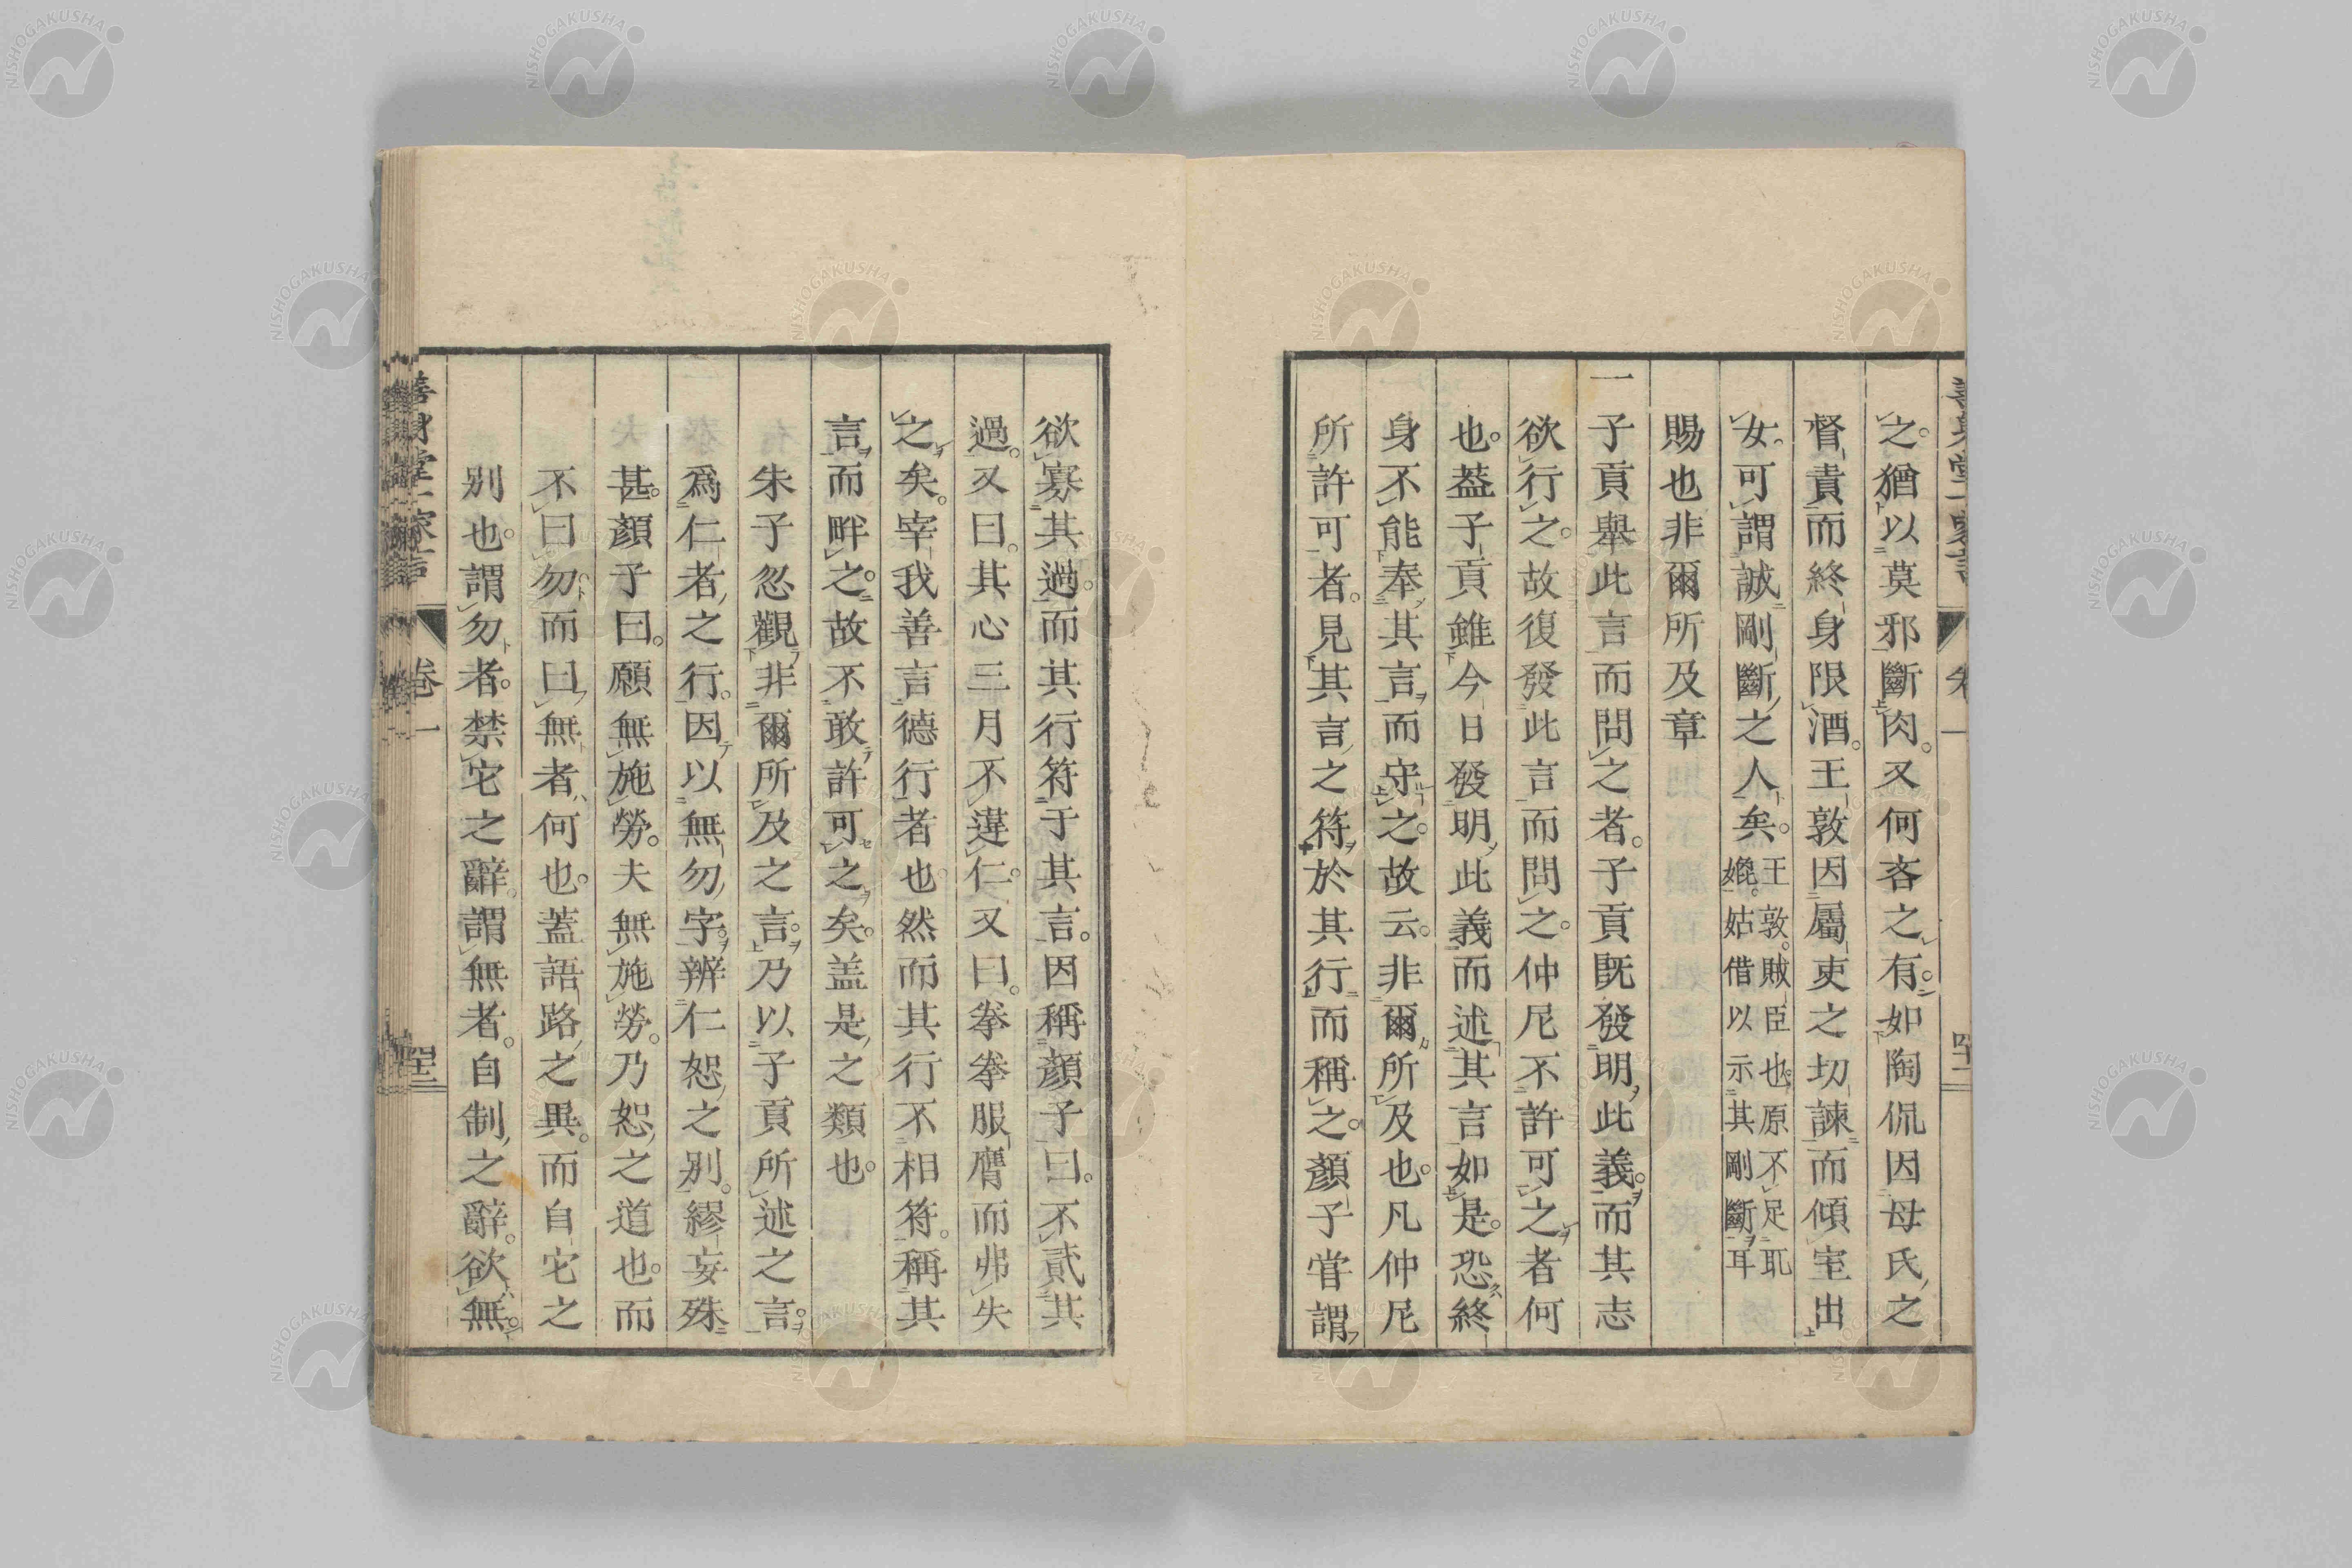 之。猶以莫邪斷肉。又何吝之有。如陶侃因母氏之
督責而終身限酒。王敦因屬吏之切諫而傾室出
女。可謂誠剛斷之人矣。王敦。賊臣也。原不足耻
媿。姑借以示其剛斷耳
賜也非爾所及章
一子貢舉此言而問之者。子貢旣發明此義。而其志
欲行之。故復發此言而問之。仲尼不許可之者何
也。葢子貢雖今日發明此義而述其言如是。恐終
身不能奉其言而守之。故云。非爾所及也。凡仲尼
所許可者。見其言之符於其行而稱之。顏子嘗謂
欲寡其過。而其行符于其言。因稱顏子曰。不貳其
過。又曰。其心三月不違仁。又曰。拳拳服膺而弗失
之矣。宰我善言德行者也。然而其行不相符。稱其
言而畔之。故不敢許可之矣。盖是之類也。
朱子忽觀非爾所及之言。乃以子貢所述之言。
爲仁者之行。因以無勿字。辨仁恕之别。繆妄殊
甚。顏子曰。願無施勞。夫無施勞。乃恕之道也。而
不曰勿而曰無者何也。蓋語路之異。而自它之
别也。謂勿者。禁它之辭。謂無者。自制之辭。欲無。
卷一
NISHOGAKUSHA